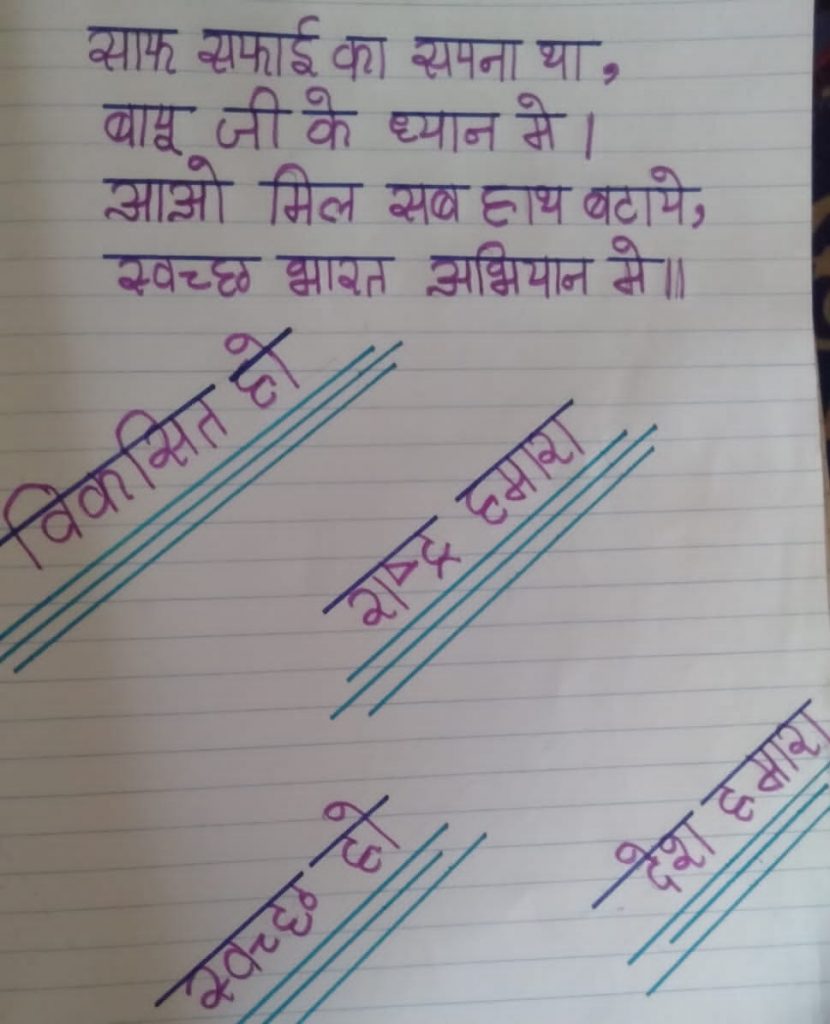 साफ सफाई का सपना था,
बापू जी के ध्यान मे।
आओ मिल सब हाथ बटाये,
स्वच्छ भारत अभियान मे॥
विकसित हो
राष्ट्र हमारा
स्वच्छ हो
देश हमारा